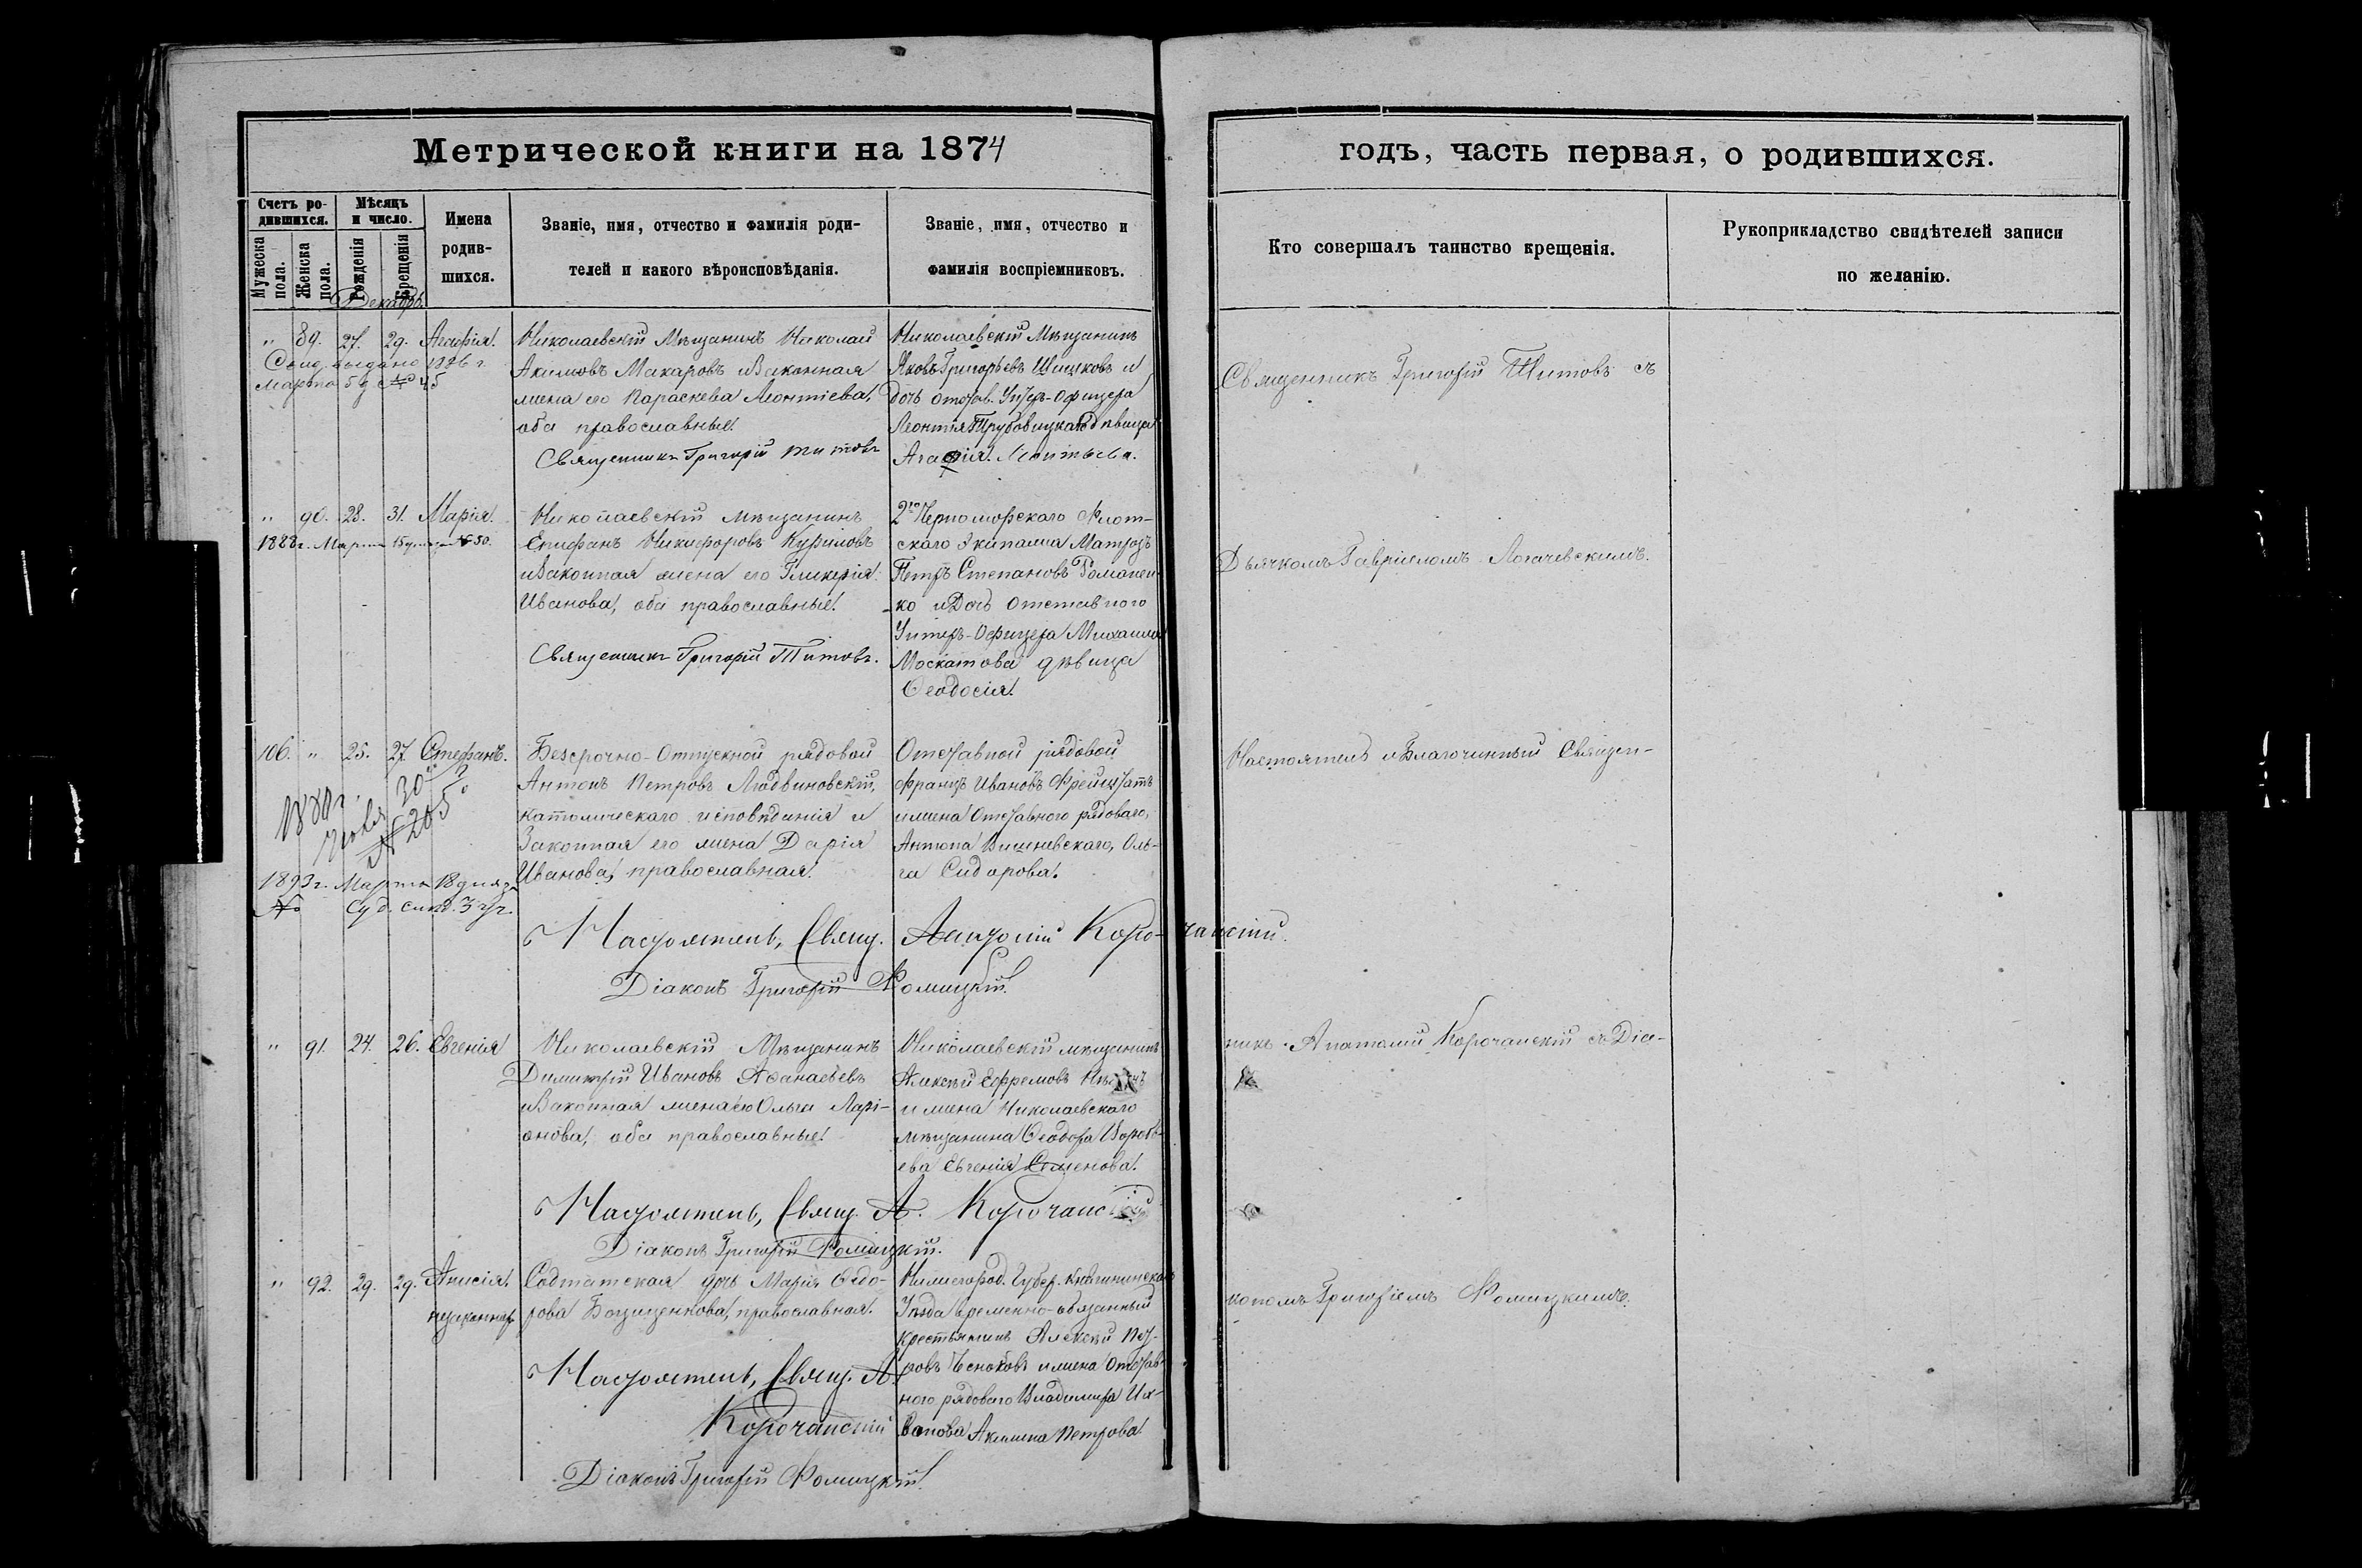 Метрической книги на 1874
Счетъ ро-
дившихся.
Мужеска пола.
Женска пола.
Мѣсяцъ
и число.
Рожденія
Крещенія
Имена
родив-
шихся.
Званіе, имя, отчество и фамилія роди-
телей и какого вѣроисповѣданія.
Званіе, имя, отчество и
фамилія воспріемниковъ.
Декабрь
" 89. 27. 29. Агафія.
Свид. выдано 1886 г.
Марта 5 д № 45
Николаевскій Мѣщанинъ Николай
Акимовъ Макаровъ и Законная
жена его Параскева Леонтіева,
оба православные.
Священникъ Григорій Титовъ
Николаевскій Мѣщанинъ
Яковъ Григорьевъ Шишковъ и
дочь отстав. Унтеръ-Офицера
Леонтія Трубовицкаго дѣвица
Агафія Леонтьева.
" 90. 28. 31. Марія.
1888 г. Марта 15 дня № 50.
Николаевскій мѣщанинъ
Епифанъ Никифоровъ Куриловъ
и Законная жена его Гликерія
Иванова, оба православные.
Священникъ Григорій Титовъ.
2го Черноморскаго Флот-
скаго Экипажа Матрозъ
Петръ Степановъ Романен-
ко и Дочь отставного
Унтеръ-Офицера Михаила
Москатова дѣвица
Ѳеодосія.
106. " 25. 27. Стефанъ.
30
№ 205
1893 г. Марта 18 дня
№
Безсрочно-Отпускной рядовой
Антонъ Петровъ Людвиновскій,
католическаго исповѣданія и
Законная его жена Дарія
Иванова, православная.
Отставной рядовой
Францъ Ивановъ
и жена Отставного рядового,
Антона Вишневскаго, Оль-
га Сидорова.
Настоятель, Свящ. Анатолій Коро-чанскій.
Діаконъ Григорій Фомицкій.
" 91. 24. 26. Евгенія
Николаевскій Мѣщанинъ
Димитрій Ивановъ Аѳанасьевъ
и Законная жена его Ольга Ларі-
онова, оба православные.
Николаевскій мѣщанинъ
Алексѣй Ефремовъ
и жена Николаевскаго
мѣщанина Ѳеодора Вороб-
ева Евгенія Семенова.
Настоятель, Свящ. А. Корочанскій
Діаконъ Григорій Фомицкій.
" 92. 29. 29. Анисія.
незаконная
Солдатская дочь Марія Ѳедо-
рова Бощиценкова, православная.
Нижегород. Губер. Княгининскаго
Уѣзда временно-обязанный
крестьянинъ Алексѣй Пет-
ровъ Чесноковъ и жена Отстав-
ного рядового Владимира Ив-
ванова Акилина Петрова
Настоятель, Свящ. А.
Корочанскій
Діаконъ Григорій Фомицкій.
годъ, часть первая, о родившихся.
Кто совершалъ таинство крещенія.
Рукоприкладство свидѣтелей записи
по желанію.
Священникъ Григорій Титовъ съ
Дьячкомъ Гавріиломъ Логачевскимъ.
Настоятель и Благочинный Священ-
никъ Анатолій Корочанскій съ Діа-
кономъ Григоріемъ Фомицкимъ.